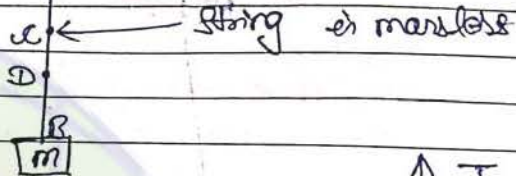 C ← string is massless
D
B
m
↑ T